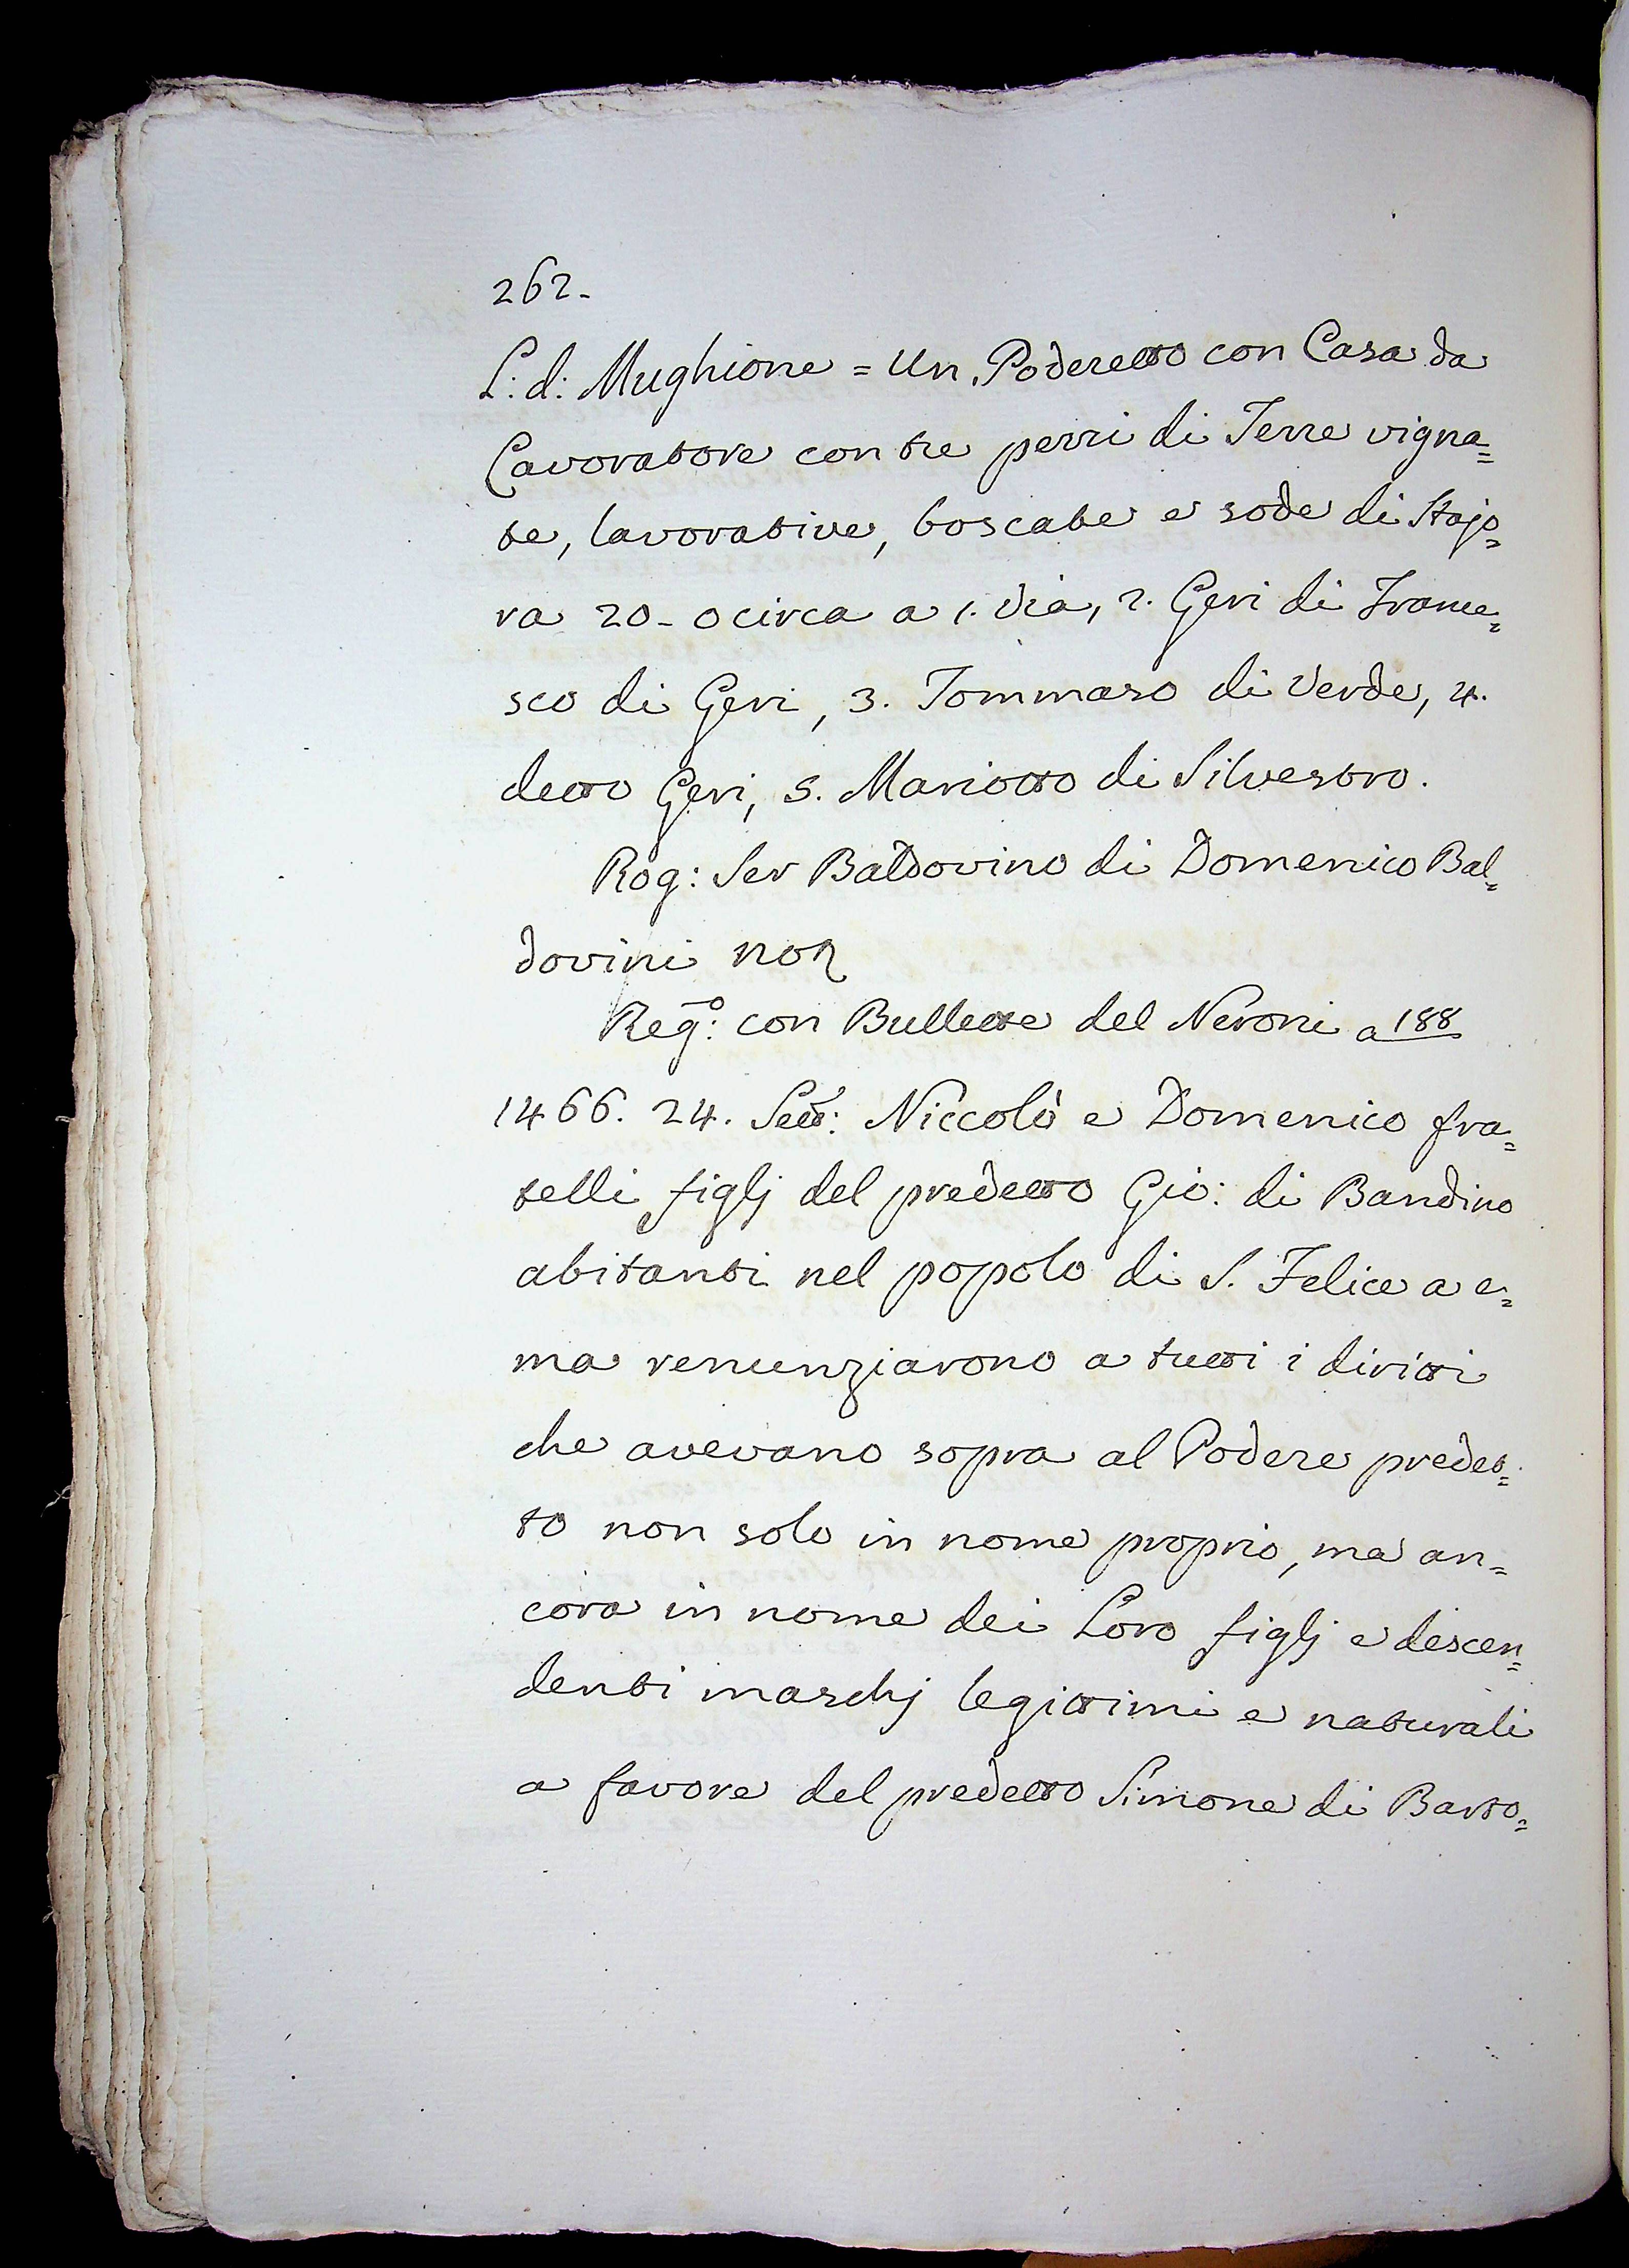 262.
L: d: Mughione = Un Poderetto con Casa da
Lavoratore con tre pezzi di Terre vigna=
te, lavorative, boscate e sode di Stajo=
ra 20 - o circa a 1. via, 2. Geri di France=
sco di Geri, 3. Tommaso di Verde, 4.
detto Geri, 5. Mariotto di Silvestro.
Rog: Ser Baldovino di Domenico Bal=
dovini not
Reg.o: con Bullette del Neroni a 188
1466. 24. Sett: Niccolò e Domenico fra=
telli figlj del predetto Gio: di Bandino
abitanti nel popolo di S. Felice a e=
ma renunziarono a tutti i diritti
che avevano sopra al Podere predet=
to non solo in nome proprio, ma an=
cora in nome dei Loro figlj e descen=
denti maschj legittimi e naturali
a favore del predetto Simone di Barto=